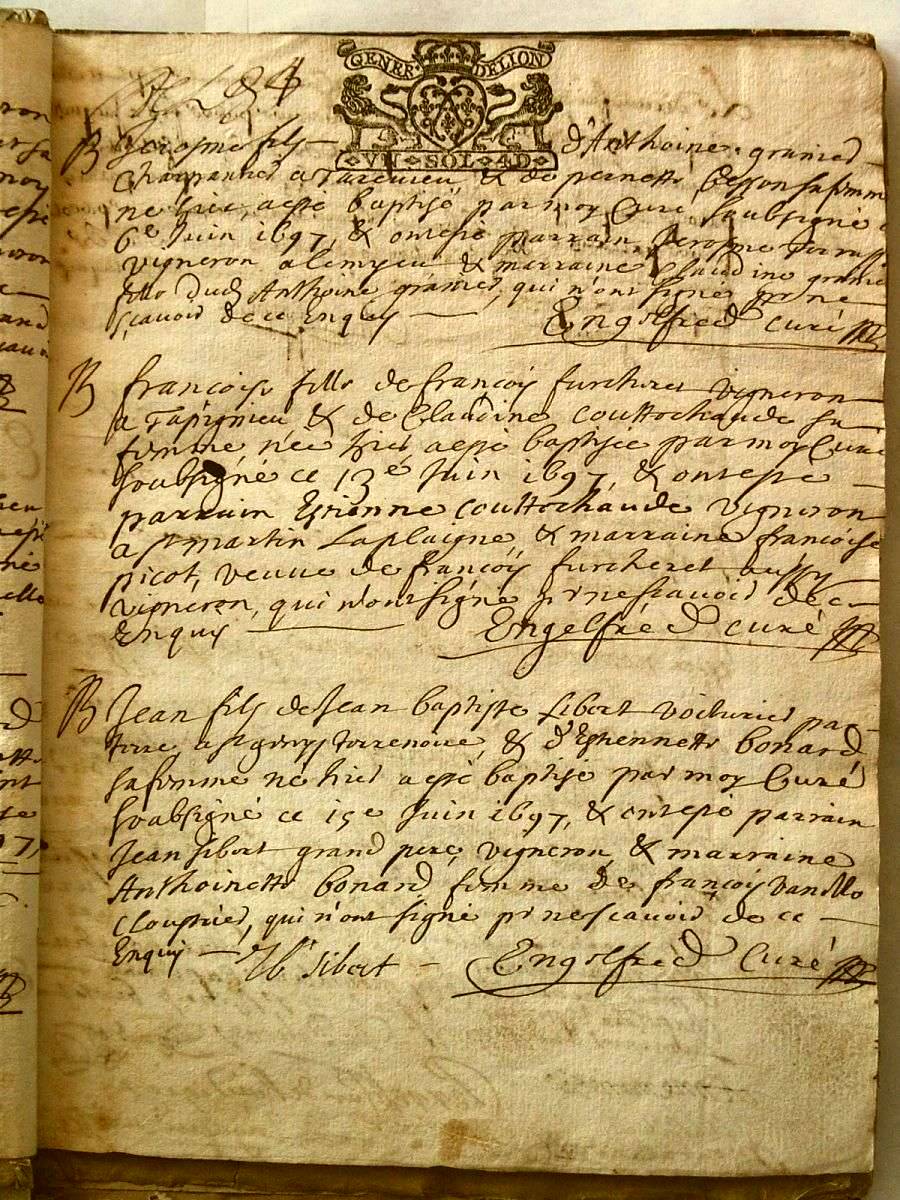 GENER. DELION
VN SOL 4D
B Jerosme fils d'Anthoine granied
charpantied a Tarevieu & de pernette besson sa femme
ne hier, a esté baptisé par moy Curé soubsigné
6e Juin 1697, & ont esté parrain Jerosme
vigneron a lemyeu & marraine Claudine granied
fille dud Anthoine granied, qui n'ont signé p ne
scavoid de ce Enquis Engelfred curé
B françoise fille de françois furcheret vigneron
a Tapignieu & de Claudine Couttochaude sa
femme, née hier, a esté baptisée par moy Curé
soubsigné ce 13e Juin 1697, & ont esté
parrain Estienne Couttochaude vigneron
a st martin Laplaigne & marraine françoise
picot, veuve de françois furcheret aussy
vigneron, qui n'ont signé pr ne scavoid de ce
Enquis Engelfred curé
B Jean fils de Jean baptiste sibert voiturier par
terre a st genys terrenoire, & d'Estiennette bonard
sa femme né hier a esté baptisé par moy Curé
soubsigné ce 15e Juin 1697, & ont esté parrain
Jean sibert grand pere, vigneron, & marraine
Anthoinette bonard femme de françois
Cloustrier, qui n'ont signé pr ne scavoid de ce
Enquis Jb sibert Engelfred Curé